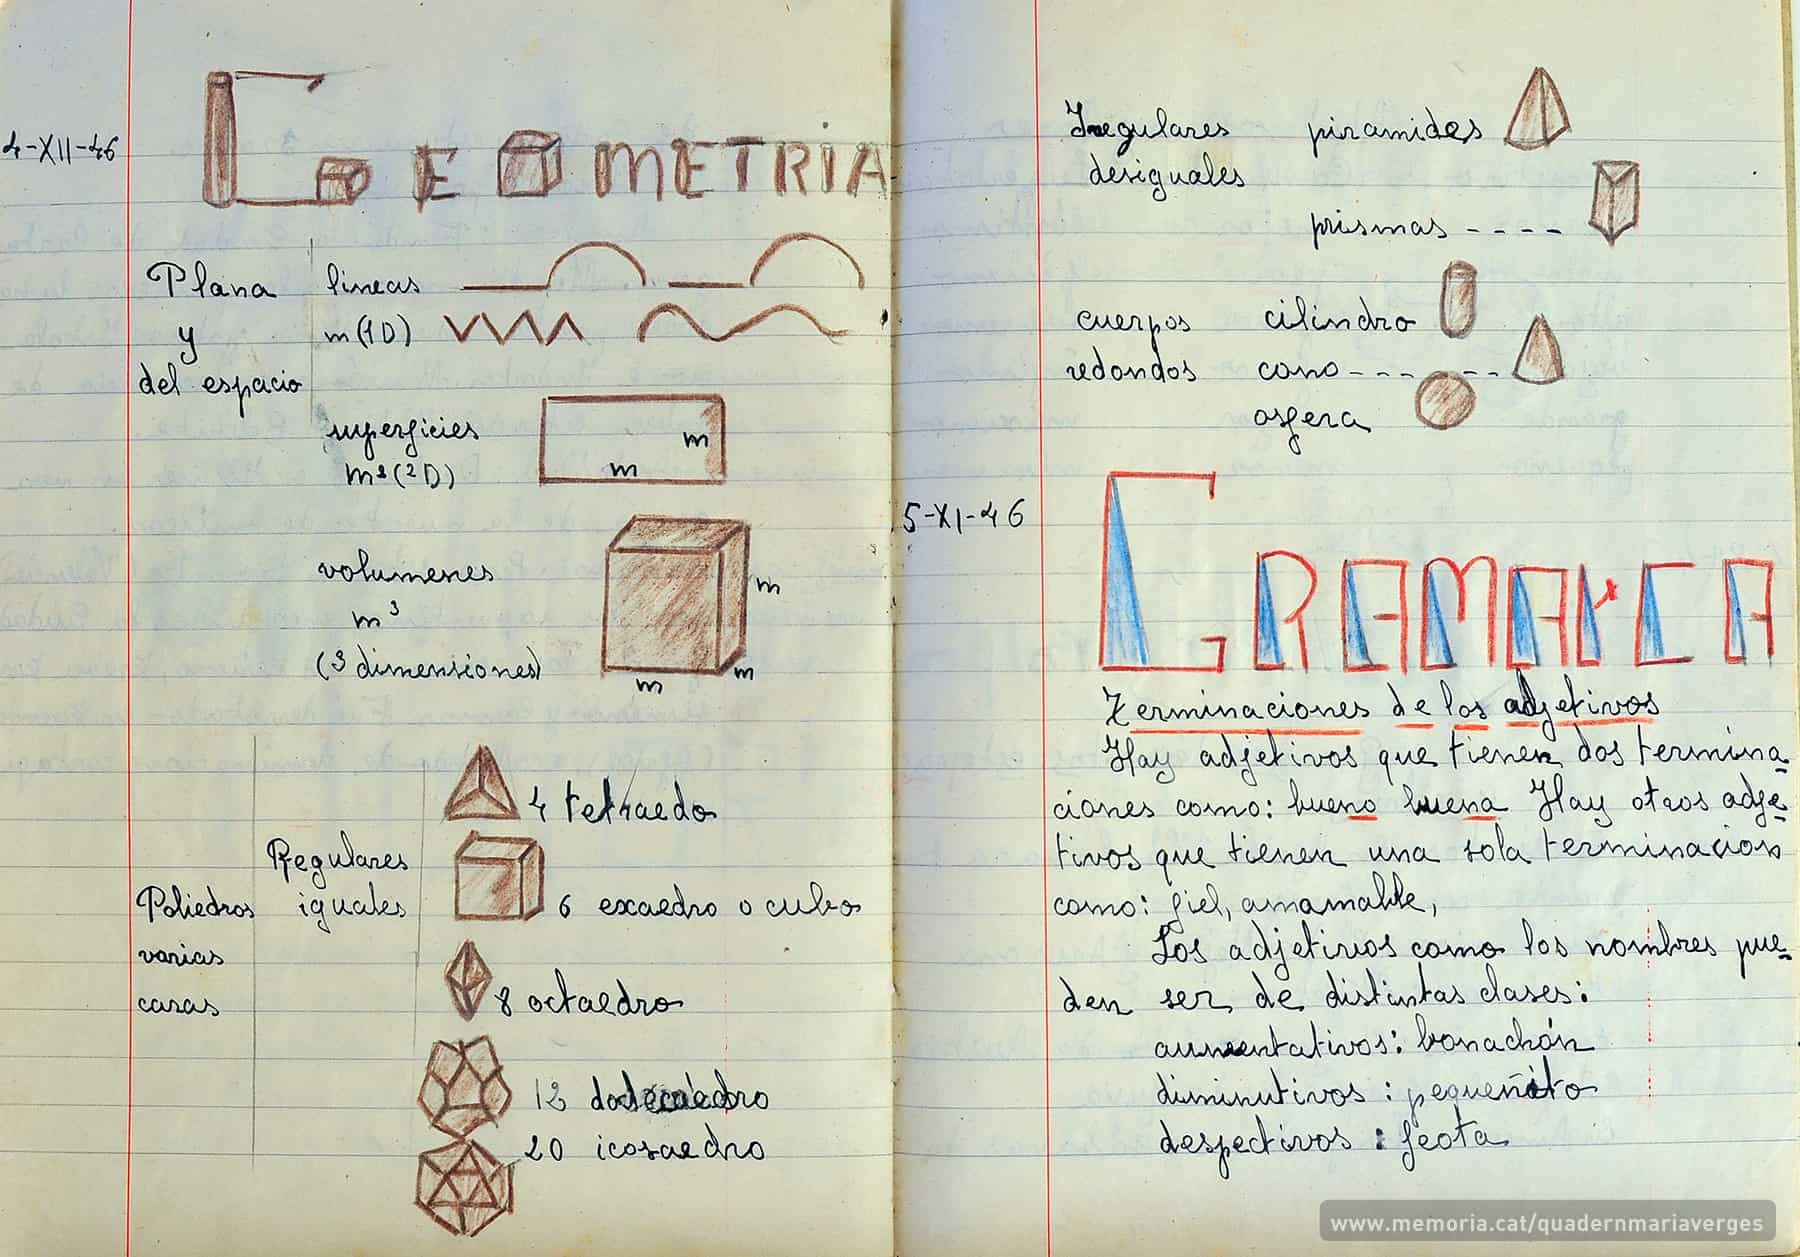 4-XII-46
GEOMETRIA
Plana
y
del espacio
lineas
m(1D)
superficies
m²(2D)
m
m
volumenes
m³
(3 dimensiones)
m
m
m
Poliedros
varias
caras
Regulares
iguales
4 tetraedo
6 exaedro o cubo
8 octaedro
12 dodecaédro
20 icosaedro
Irregulares
desiguales
piramides
prismas ----
cuerpos
redondos
cilindro
cono--- ---
esfera
5-XI-46
Terminaciones de los adjetivos
Hay adjetivos que tienen dos termina-
ciones como: bueno buena Hay otros adje-
tivos que tienen una sola terminacion
como: fiel, amamable,
Los adjetivos como los nombres pue-
den ser de distintas clases:
aumentativos: bonachón
diminutivos: pequeñito
despectivos: feota
www.memoria.cat/quadernmariaverges